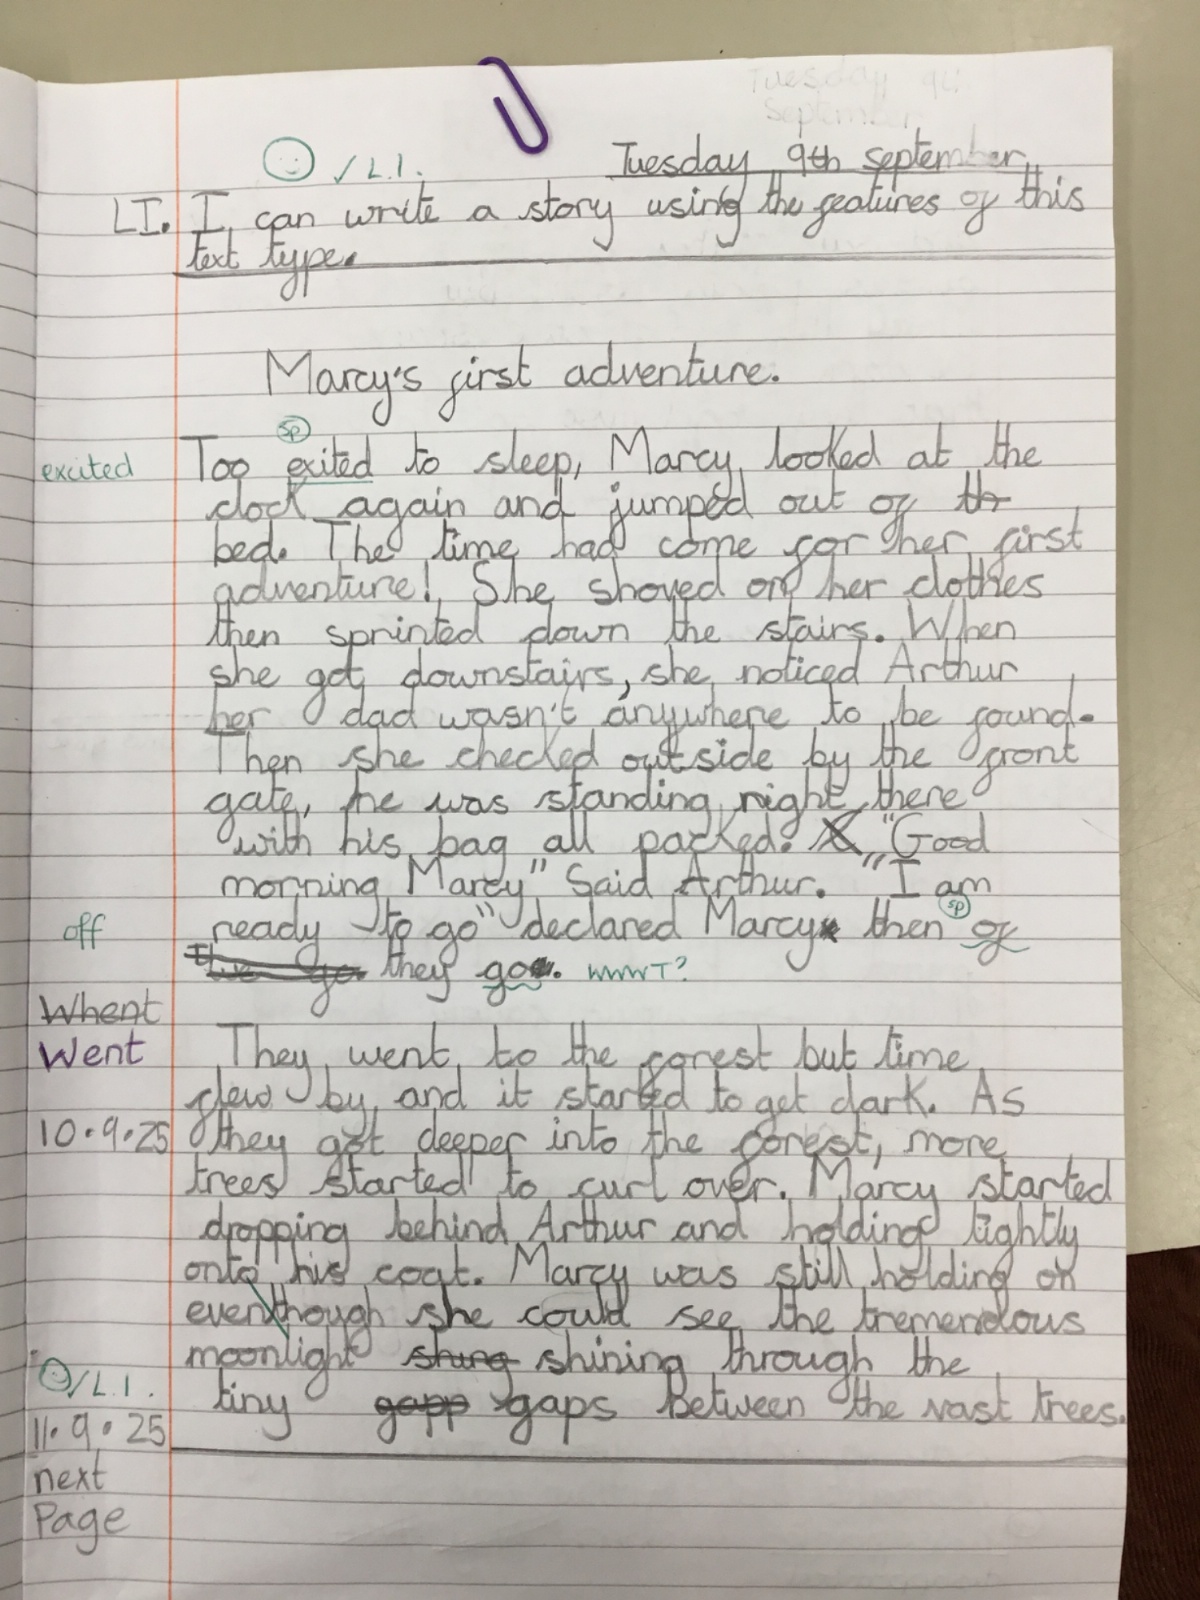 Tuesday 9th
September
☺ ✓ L.I.
Tuesday 9th september
LI. I can write a story using the features of this
text type.
Marcy's first adventure.
sp
excited
Too exited to sleep, Marcy looked at the
clock again and jumped out of th
bed. The time had come for her first
adventure! She shoved on her clothes
then sprinted down the stairs. When
she got downstairs, she noticed Arthur
her dad wasn't anywhere to be found.
Then she checked outside by the front
gate, he was standing right there
with his bag all packed. "Good
morning Marcy" Said Arthur. "I am
sp
off
ready to go" declared Marcy then of
they go. WWWT?
Whent
Went
They went to the forest but time
flew by and it started to get dark. As
10.9.25
they got deeper into the forest, more
trees started to curl over. Marcy started
dropping behind Arthur and holding tightly
onto his coat. Marcy was still holding on
eventhough she could see the tremendous
moonlight shing shining through the
☺/L.I.
tiny gapp gaps between the vast trees.
11.9.25
next
Page